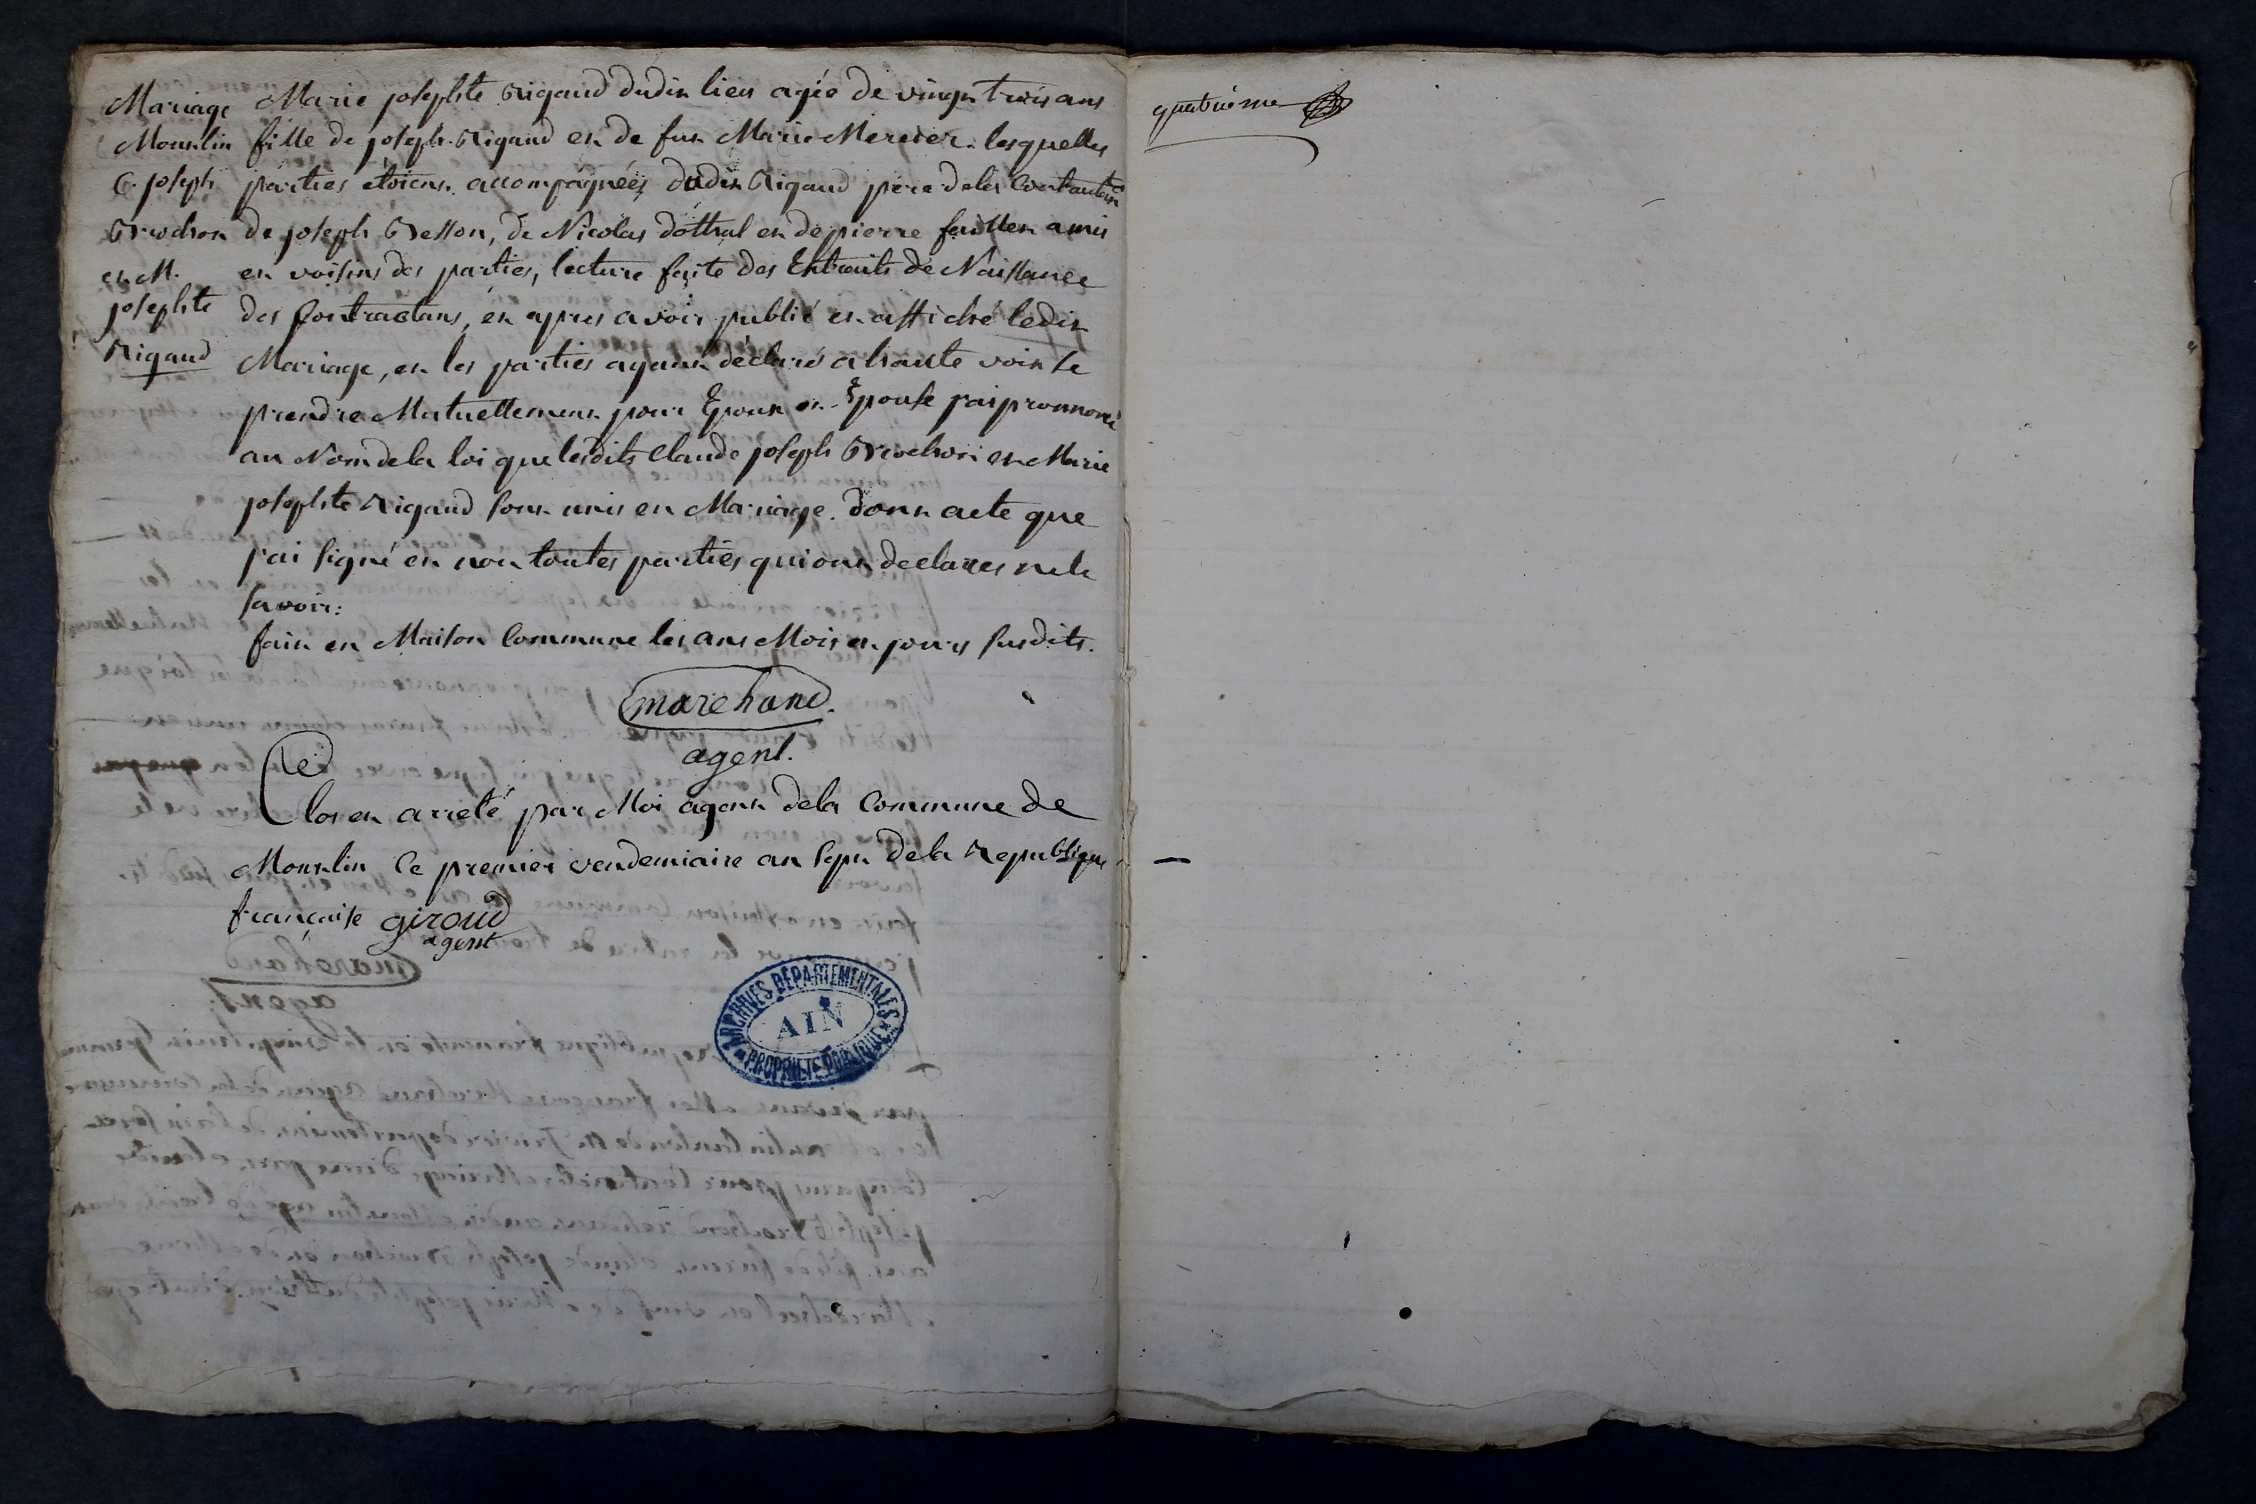 Mariage
Mountlin
C. joseph
Brochon
et M.
josephte
Rigaud
Marie josephte Rigaud dudit lieu agée de vingt trois ans
fille de joseph Rigaud et de fut Marie Mercier lesquelles
parties étoient accompagnées dudit Rigaud pere de la Contractante
de joseph Besson, de Nicolas dotthal et de pierre amis
et voisins des parties, lecture faite des Extraits de Naissance
des Contractans, et apres avoir publié et affiché ledit
Mariage, et les parties ayant déclaré a haute voix se
prendre Mutuellement pour Epoux et Epouse j'ai pronnoncé
au Nom de la loi que lesdits Claude joseph Brochon et Marie
josephte Rigaud sont unis en Mariage. dont acte que
j'ai signé et non toutes parties qui ont declarees ne le
savoir:
fait en Maison Commune les ans Mois et jours susdits.
marchand.
agent.
Clos et arreté par Moi agent de la Commune de
Mountlin Ce premier vendemiaire an sept de la Republique
française giroud
agent
ARCHIVES DÉPARTEMENTALES
AIN
PROPRIÉTÉ PUBLIQUE
quatrième